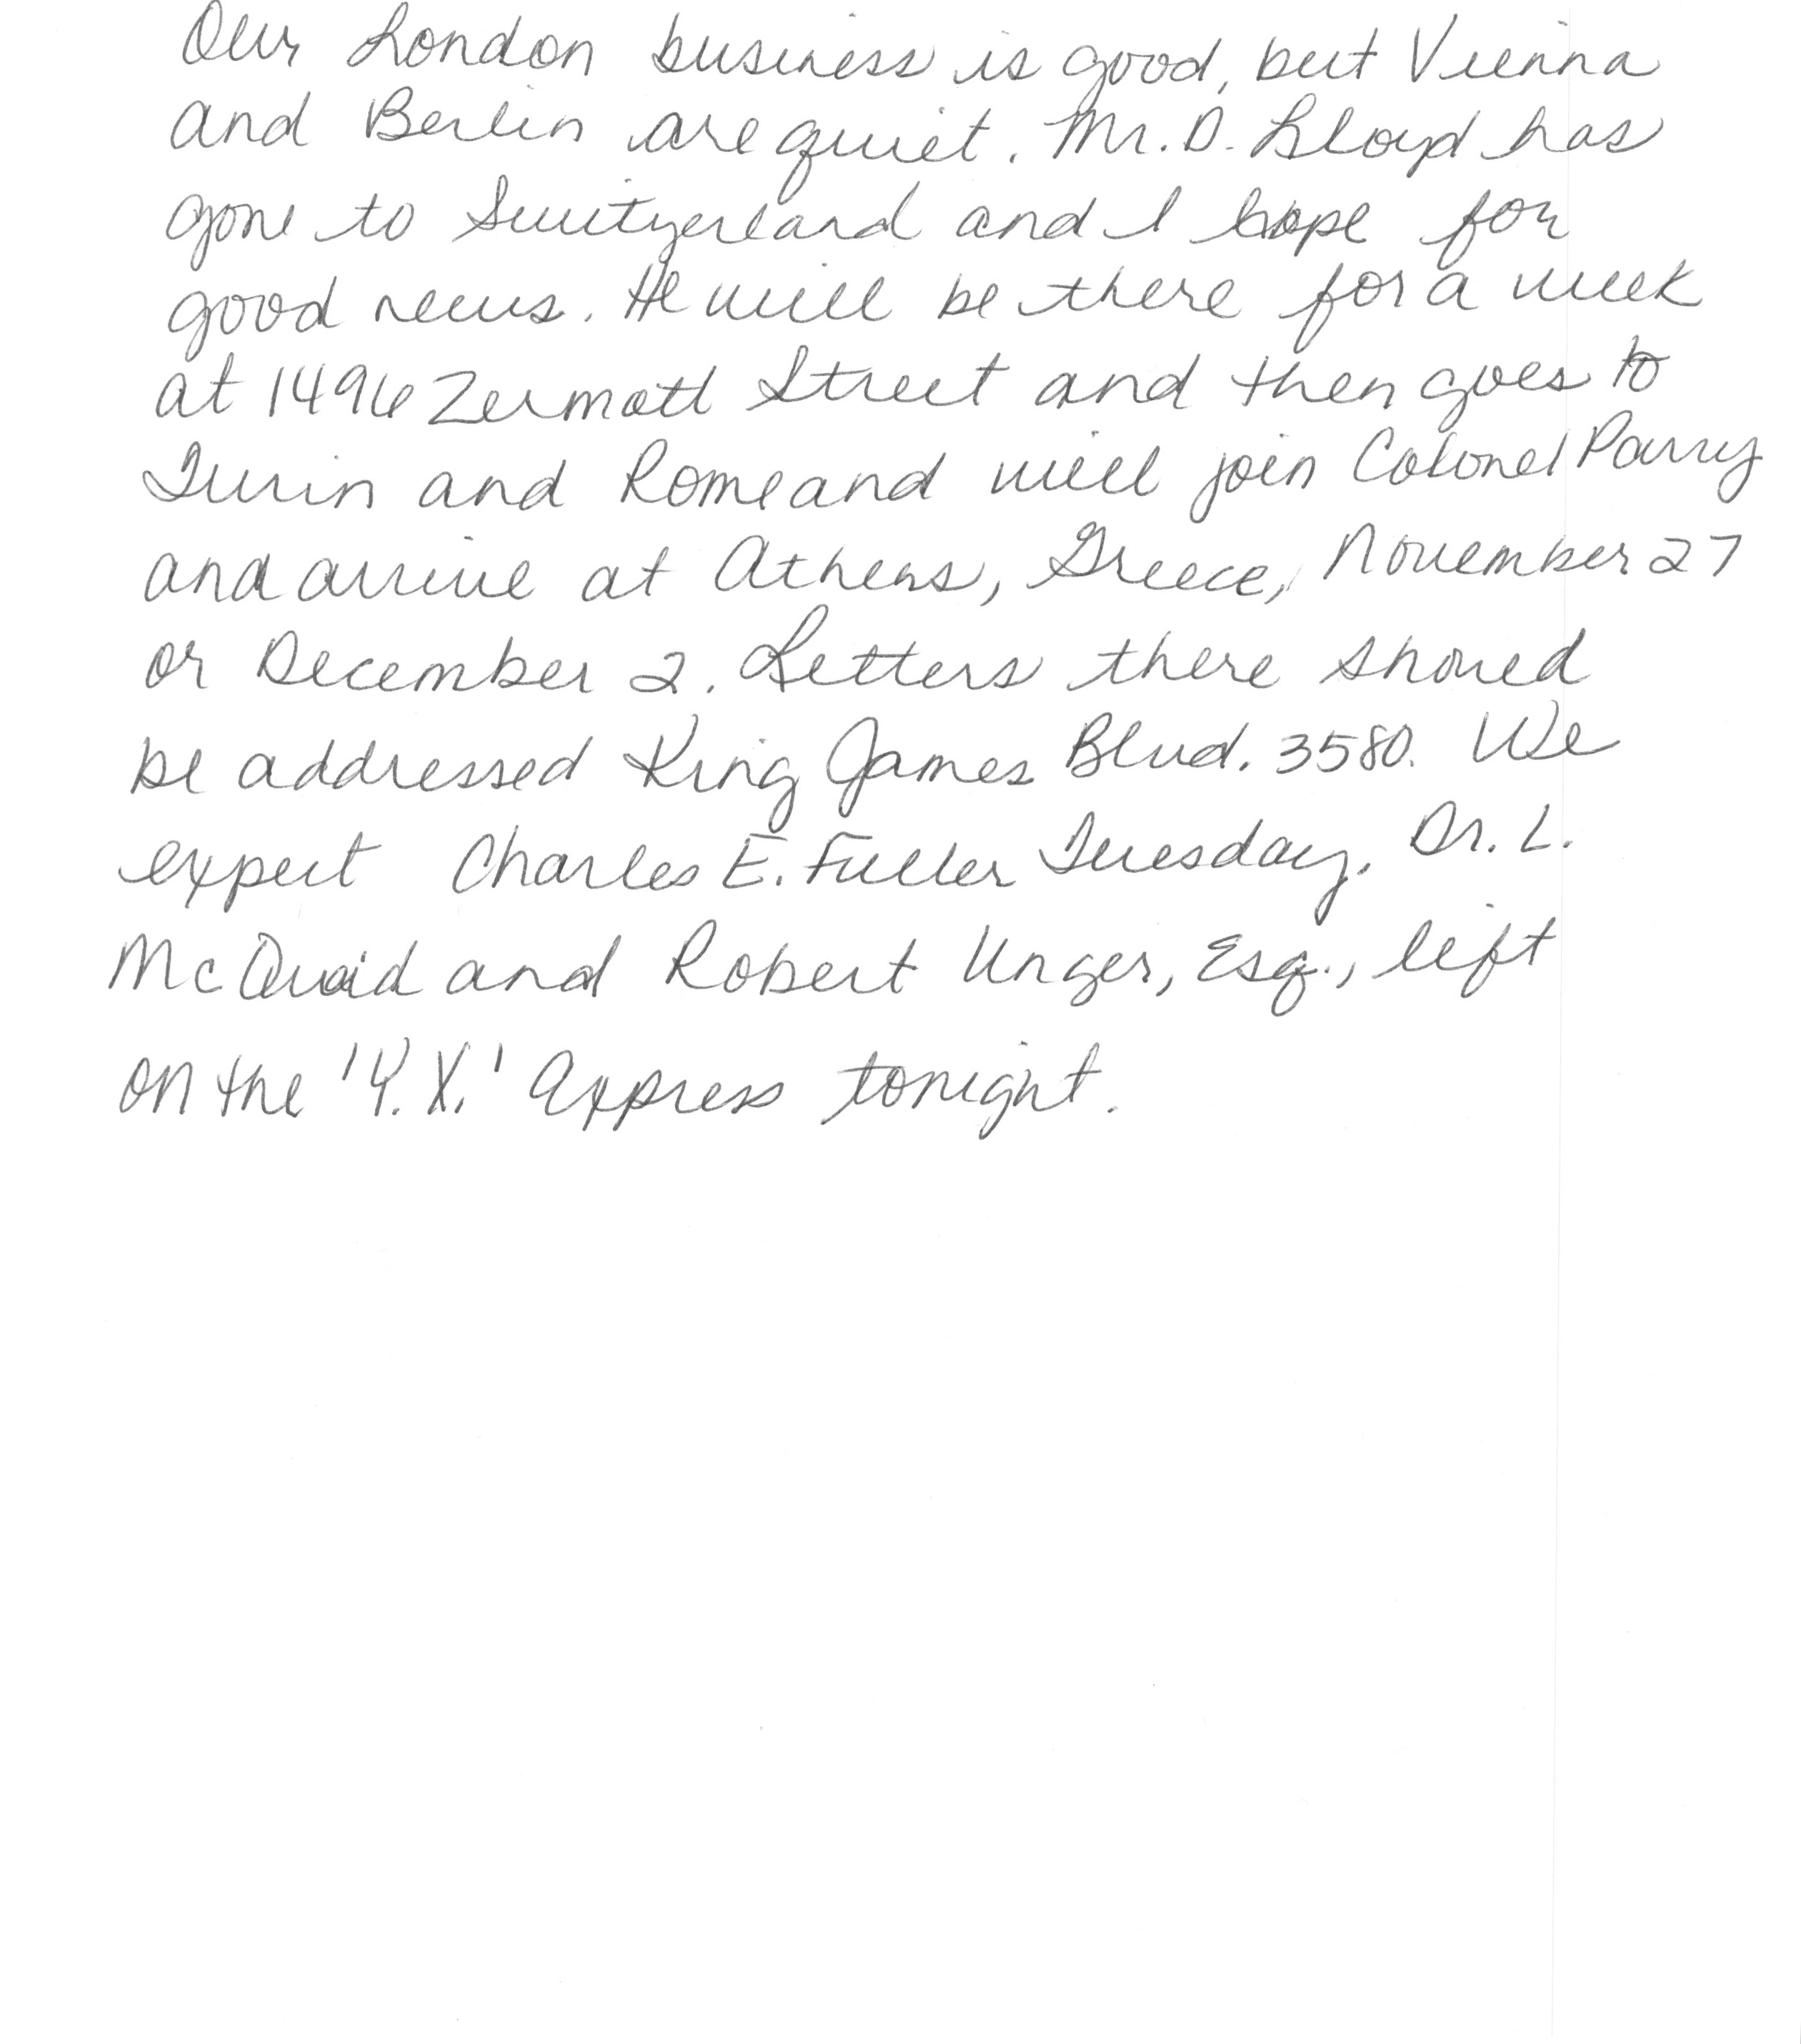 Our London business is good, but Vienna
and Berlin are quiet. Mr. D. Lloyd has
gone to Switzerland and I hope for
good news. He will be there for a week
at 1496 Zermott Street and then goes to
Turin and Rome and will join Colonel Parry
and arrive at Athens, Greece, November 27
or December 2. Letters there should
be addressed King James Blvd. 3580. We
expect Charles E. Fuller Tuesday. Dr. L.
McQuaid and Robert Unger, Esq., left
on the 'Y.X.' Express tonight.